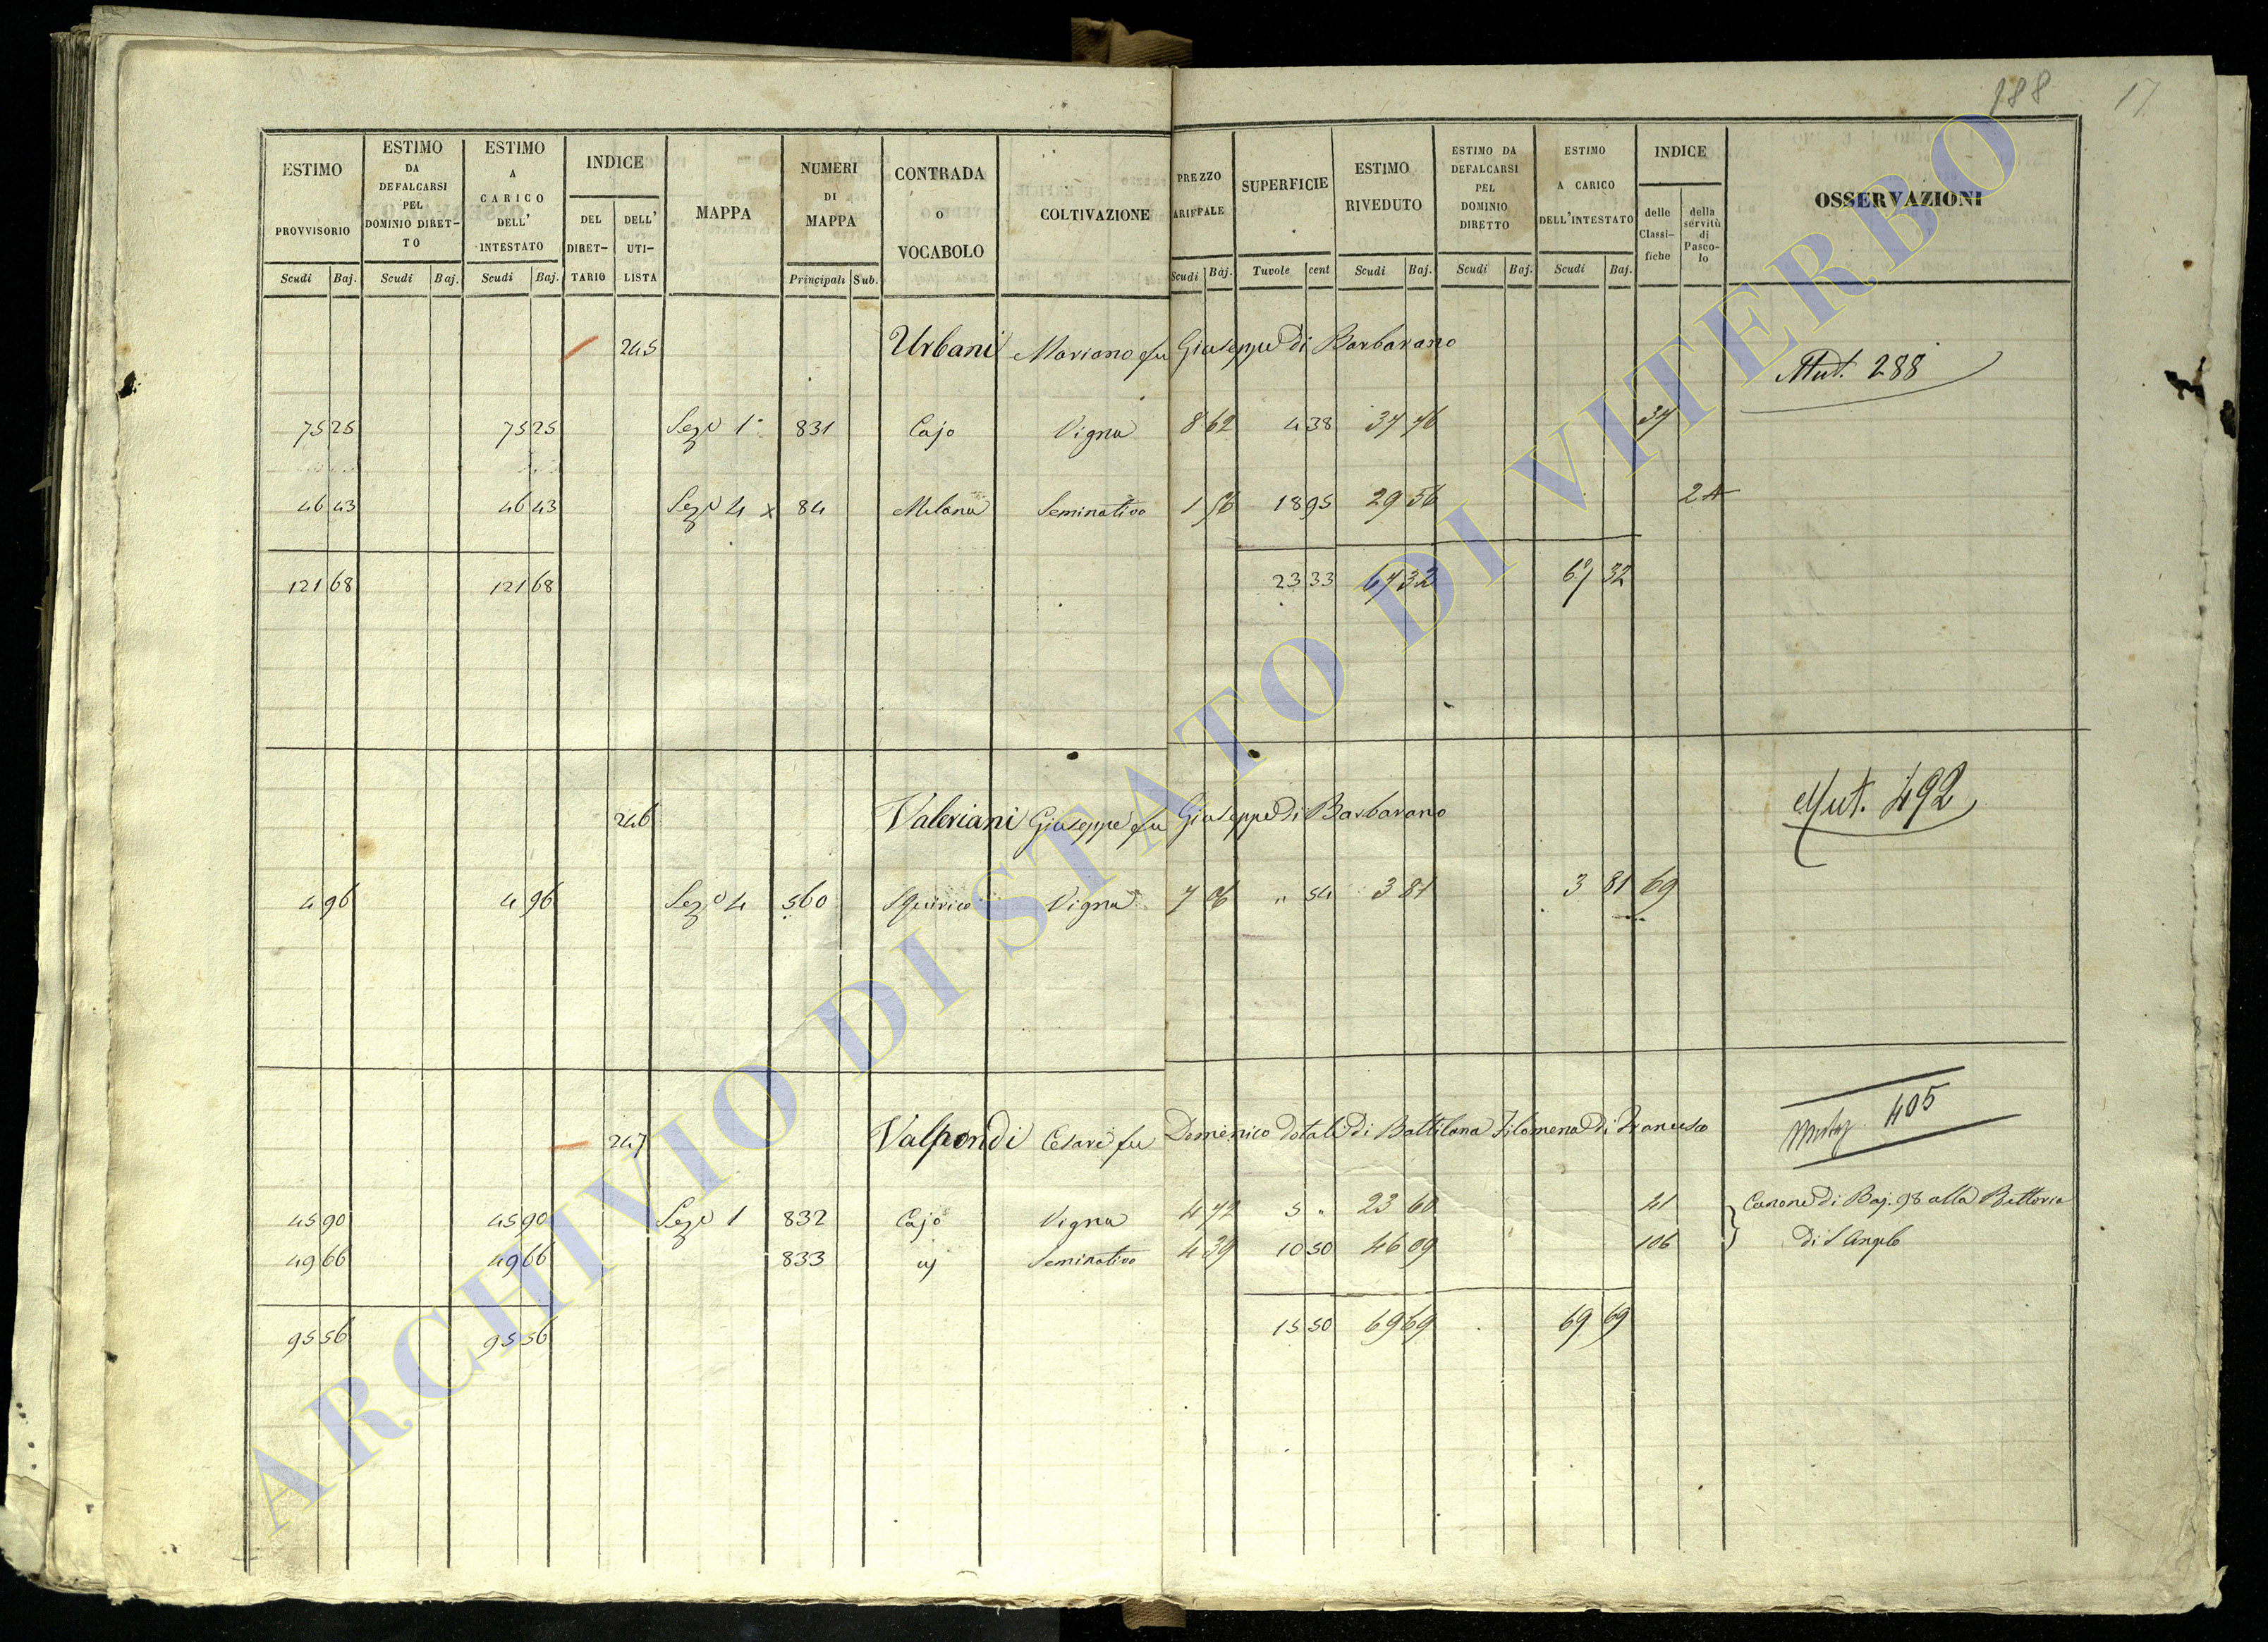 188 17
ESTIMO PROVVISORIO Scudi Baj.
ESTIMO DA DEFALCARSI PEL DOMINIO DIRETTO Scudi Baj.
ESTIMO A CARICO DELL' INTESTATO Scudi Baj.
INDICE DEL DIRETTARIO DELL' UTILISTA
MAPPA
NUMERI DI MAPPA Principali Sub.
CONTRADA O VOCABOLO
COLTIVAZIONE
PREZZO ARIFFALE Scudi Baj.
SUPERFICIE Tavole cent
ESTIMO RIVEDUTO Scudi Baj.
ESTIMO DA DEFALCARSI PEL DOMINIO DIRETTO Scudi Baj.
ESTIMO A CARICO DELL'INTESTATO Scudi Baj.
INDICE delle Classifiche della servitù di Pascolo
OSSERVAZIONI
245 Urbani Mariano fu Giuseppe di Barbarano
Mut. 288
75 25 75 25 Sez.e 1a 831 Cajo Vigna 8 62 4 38 37 76 37
46 43 46 43 Sez.e 4 x 84 Milana Seminativo 1 56 18 95 29 56 2 A
121 68 121 68 23 33 67 32 67 32
246 Valeriani Giuseppe fu Giuseppe di Barbarano
Mut. 492
4 96 4 96 Sez.e 4 560 S Quirico Vigna 7 06 " 54 3 81 3 81 69
247 Valpondi Cesare fu Domenico dotali di Battilana Filomena di Francesco
405
45 90 45 90 Sez.e 1 832 Cajo Vigna 4 72 5 " 23 60 41 Canone di Baj. 98 alla Rettoria
49 66 49 66 833 Seminativo 4 39 10 50 46 09 106 di S Angelo
95 56 95 56 15 50 69 69 69 69
ARCHIVIO DI STATO DI VITERBO